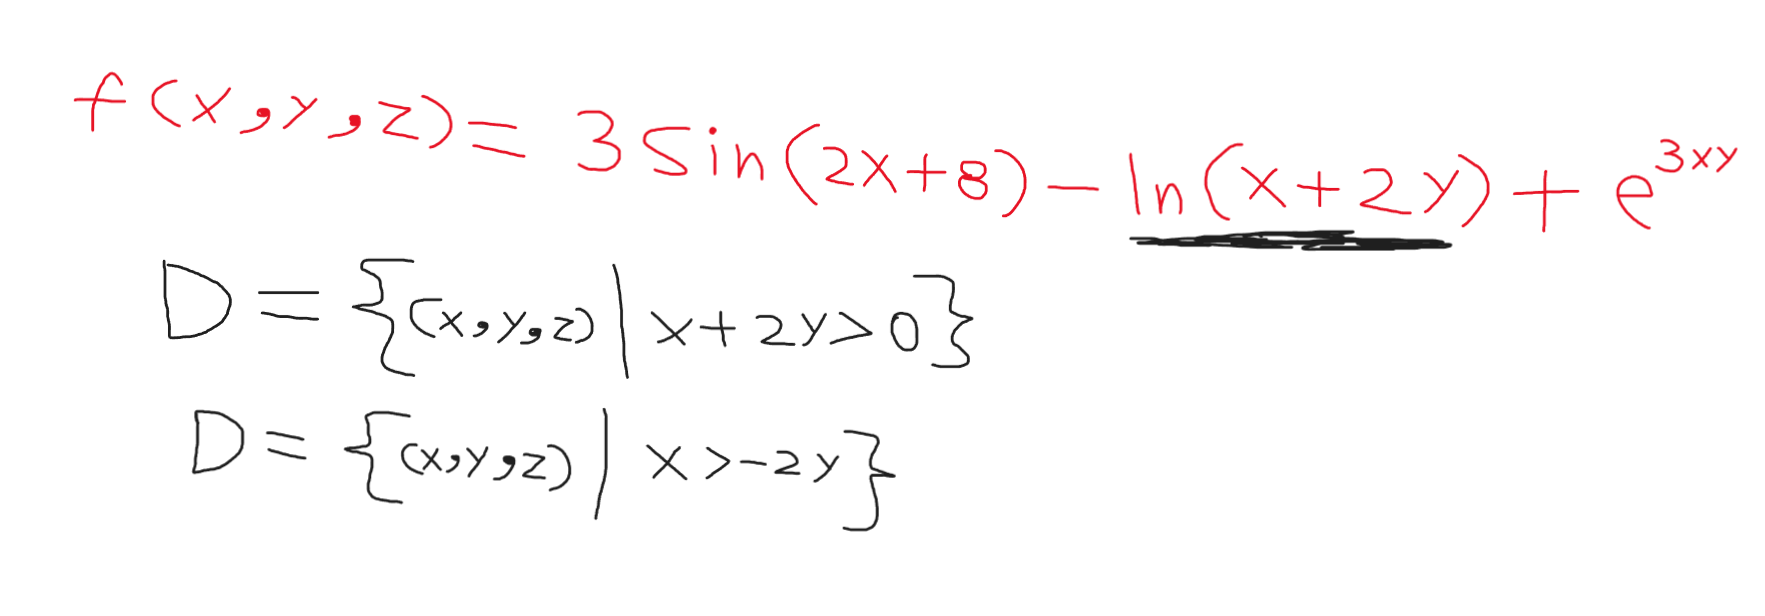 f(x,y,z) = 3 Sin(2x+8) - ln(x+2y) + e^{3xy}
D = {(x,y,z) | x+2y>0}
D = {(x,y,z) | x>-2y}